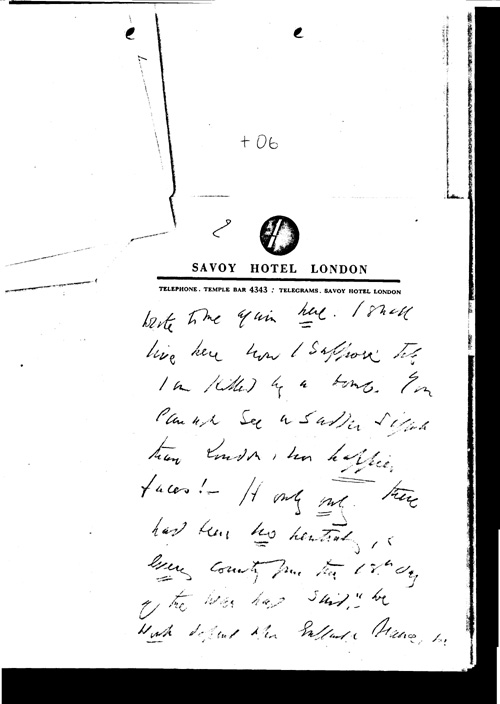 + 06
2
SAVOY HOTEL LONDON
TELEPHONE. TEMPLE BAR 4343 : TELEGRAMS. SAVOY HOTEL LONDON
wrote to me again here. I shall
live here now I suppose till
I am killed by a bomb. You
cannot see a sadder sight
than London, nor happier
faces! – If only only there
had been no neutrals,
every country from the day
of the War had said, " we
must defend